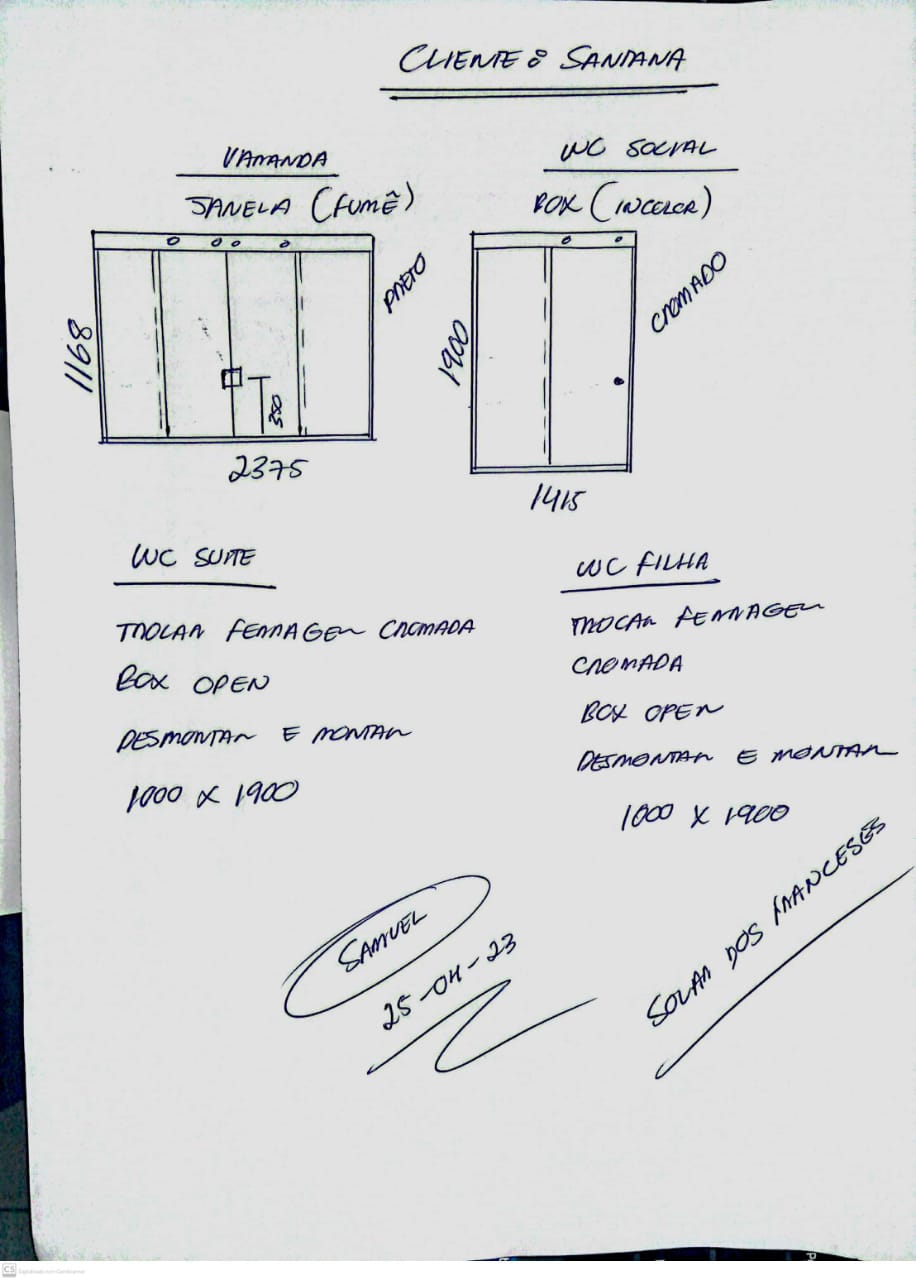 CLIENTE: SANTANA
VARANDA
JANELA (FUMÊ)
PRETO
1168
350
2375
WC SOCIAL
BOX (INCOLOR)
CROMADO
1900
1415
WC SUITE
TROCAR FERRAGEM CROMADA
BOX OPEN
DESMONTAR E MONTAR
1000 X 1900
WC FILHA
TROCAR FERRAGEM
CROMADA
BOX OPEN
DESMONTAR E MONTAR
1000 X 1900
SAMUEL
25-04-23
SOLAR DOS FRANCESES
CS Digitalizado com CamScanner